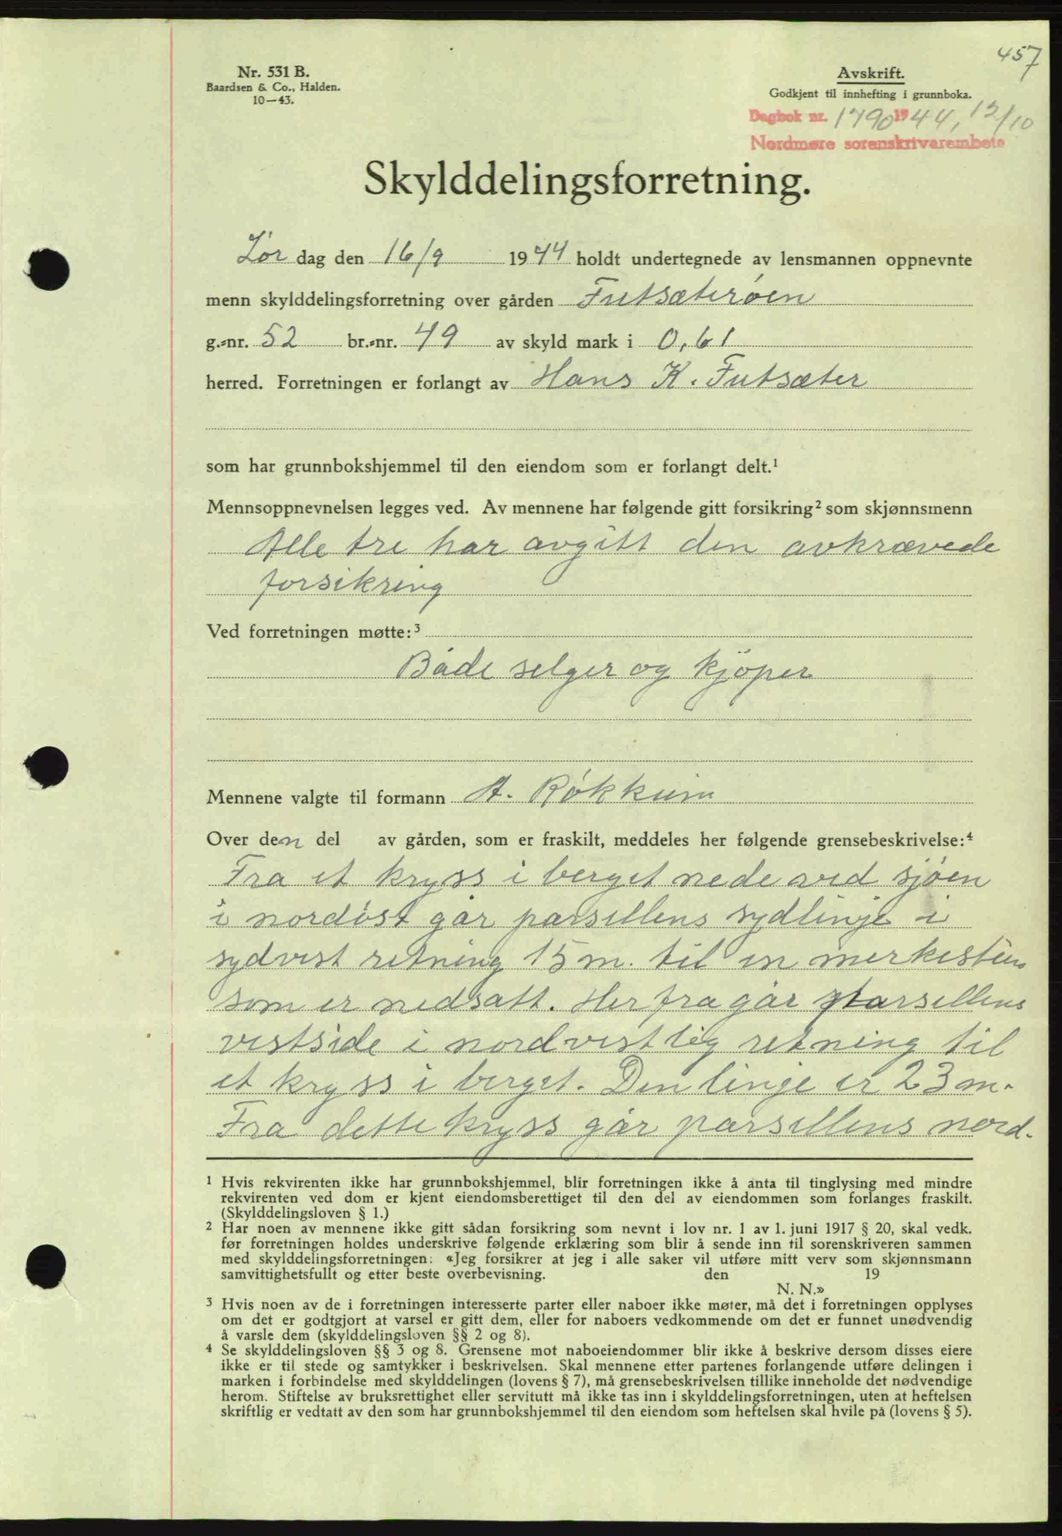 457
Nr. 531 B.
Baardsen & Co., Halden.
10—43.
Avskrift.
Godkjent til innhefting i grunnboka.
Dagbok nr. 1790 1944, 12/10
Nordmøre sorenskrivarembete
Skylddelingsforretning.
Lør dag den 16/9 1944 holdt undertegnede av lensmannen oppnevnte
menn skylddelingsforretning over gården Futsæterøen
g.-nr. 52 br.-nr. 49 av skyld mark i 0,61
herred. Forretningen er forlangt av Hans K. Futsæter
som har grunnbokshjemmel til den eiendom som er forlangt delt.¹
Mennsoppnevnelsen legges ved. Av mennene har følgende gitt forsikring² som skjønnsmenn
Alle tre har avgitt den avkrævede
forsikring
Ved forretningen møtte:³
Både selger og kjöper
Mennene valgte til formann A. Rökkum
Over den del av gården, som er fraskilt, meddeles her følgende grensebeskrivelse:⁴
Fra et kryss i berget nede ved sjöen
i nordöst går parsellens sydlinje i
sydvest retning 15 m. til en merkesten
som er nedsatt. Herfra går parsellens
vestside i nordvestlig retning til
et kryss i berget. Den linje er 23 m.
Fra dette kryss går parsellens nord-
¹ Hvis rekvirenten ikke har grunnbokshjemmel, blir forretningen ikke å anta til tinglysing med mindre
rekvirenten ved dom er kjent eiendomsberettiget til den del av eiendommen som forlanges fraskilt.
(Skylddelingsloven § 1.)
² Har noen av mennene ikke gitt sådan forsikring som nevnt i lov nr. 1 av 1. juni 1917 § 20, skal vedk.
før forretningen holdes underskrive følgende erklæring som blir å sende inn til sorenskriveren sammen
med skylddelingsforretningen: «Jeg forsikrer at jeg i alle saker vil utføre mitt verv som skjønnsmann
samvittighetsfullt og etter beste overbevisning. den 19
N. N.»
³ Hvis noen av de i forretningen interesserte parter eller naboer ikke møter, må det i forretningen opplyses
om det er godtgjort at varsel er gitt dem, eller for naboers vedkommende om det er funnet unødvendig
å varsle dem (skylddelingsloven §§ 2 og 8).
⁴ Se skylddelingsloven §§ 3 og 8. Grensene mot naboeiendommer blir ikke å beskrive dersom disses eiere
ikke er til stede og samtykker i beskrivelsen. Skal mennene etter partenes forlangende utføre delingen i
marken i forbindelse med skylddelingen (lovens § 7), må grensebeskrivelsen tillike inneholde det nødvendige
herom. Stiftelse av bruksrettighet eller servitutt må ikke tas inn i skylddelingsforretningen, uten at heftelsen
skriftlig er vedtatt av den som har grunnbokshjemmel til den eiendom som heftelsen skal hvile på (lovens § 5).